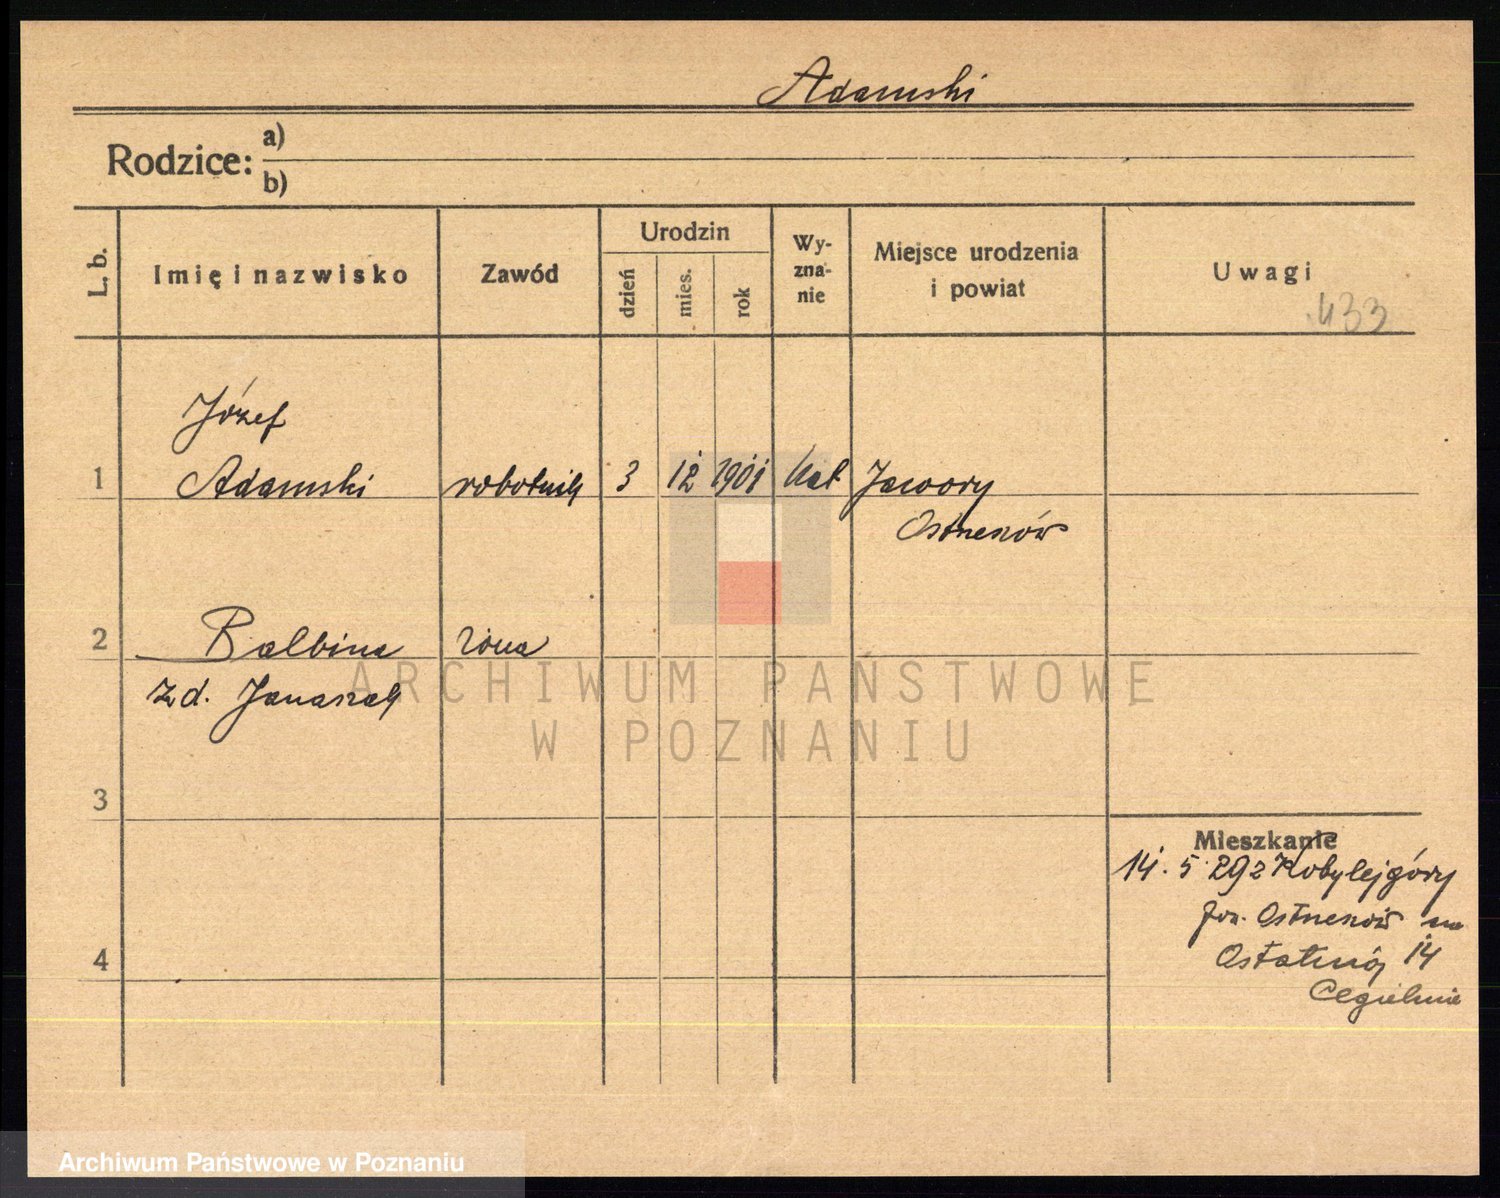 Adamski
Rodzice: a)
b)
L. b. Imię i nazwisko Zawód Urodzin dzień mies. rok Wy-zna-nie Miejsce urodzenia i powiat Uwagi
433
Józef
1 Adamski robotnik 3 12 1901 kat Jawory
Ostrzeszów
2 Balbina żona
zd. Janaszak
ARCHIWUM PAŃSTWOWE
W POZNANIU
3
Mieszkanie
14. 5 29 z Kobylejgóry
pow. Ostrzeszów na
Ostatniej 14
4
Cegielnie
Archiwum Państwowe w Poznaniu